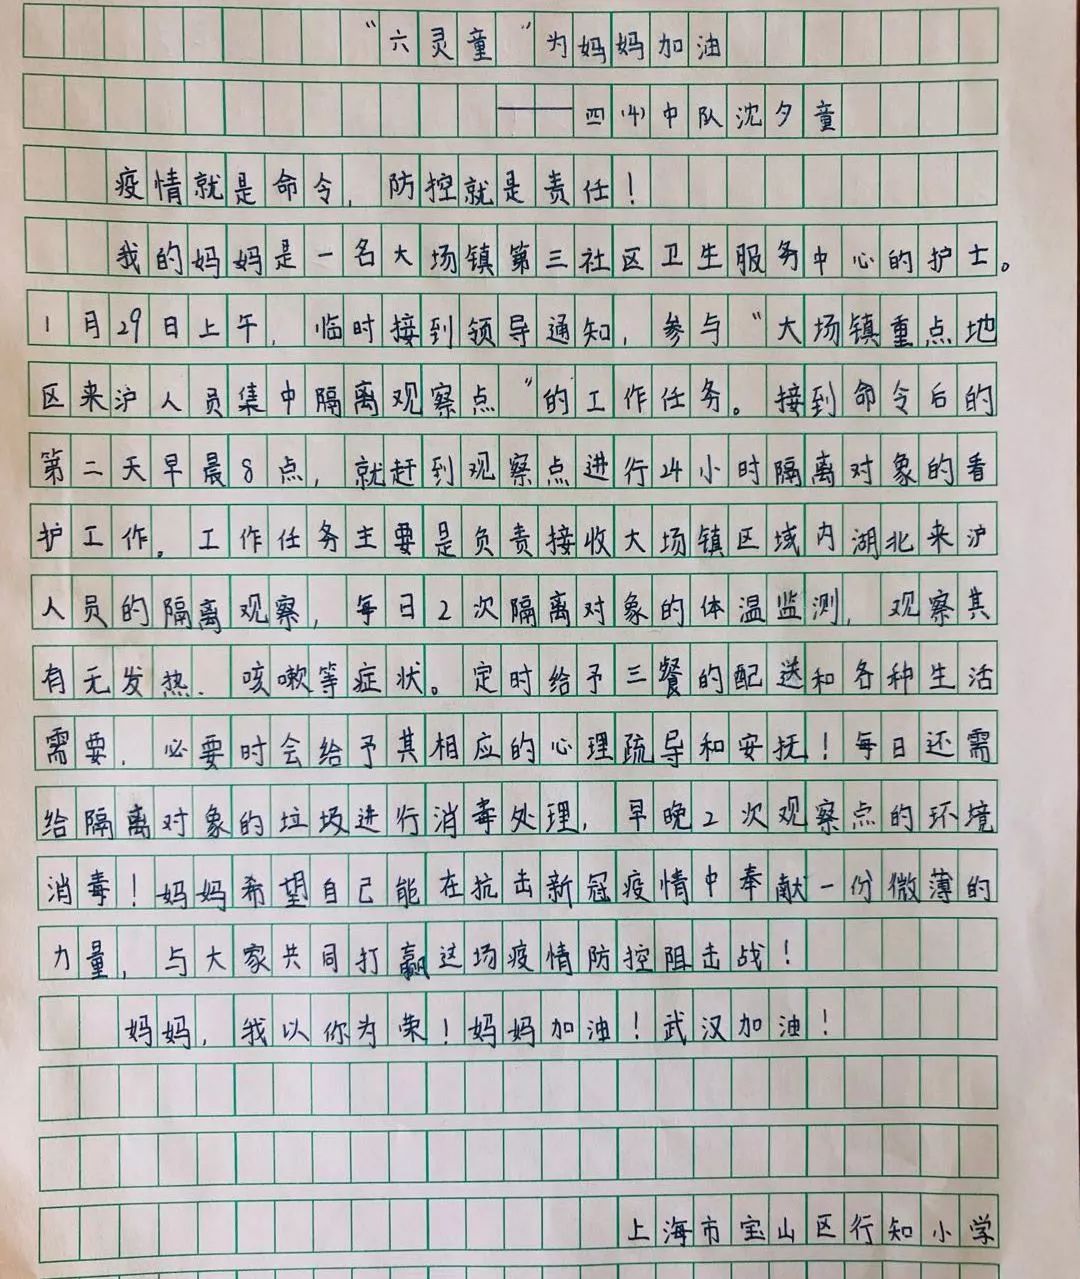 “六灵童”为妈妈加油
——四(4)中队沈夕童
疫情就是命令，防控就是责任！
我的妈妈是一名大场镇第三社区卫生服务中心的护士。
1月29日上午，临时接到领导通知，参与“大场镇重点地
区来沪人员集中隔离观察点”的工作任务。接到命令后的
第二天早晨8点，就赶到观察点进行24小时隔离对象的看
护工作。工作任务主要是负责接收大场镇区域内湖北来沪
人员的隔离观察，每日2次隔离对象的体温监测，观察其
有无发热、咳嗽等症状。定时给予三餐的配送和各种生活
需要，必要时会给予其相应的心理疏导和安抚！每日还需
给隔离对象的垃圾进行消毒处理，早晚2次观察点的环境
消毒！妈妈希望自己能在抗击新冠疫情中奉献一份微薄的
力量，与大家共同打赢这场疫情防控阻击战！
妈妈，我以你为荣！妈妈加油！武汉加油！
上海市宝山区行知小学